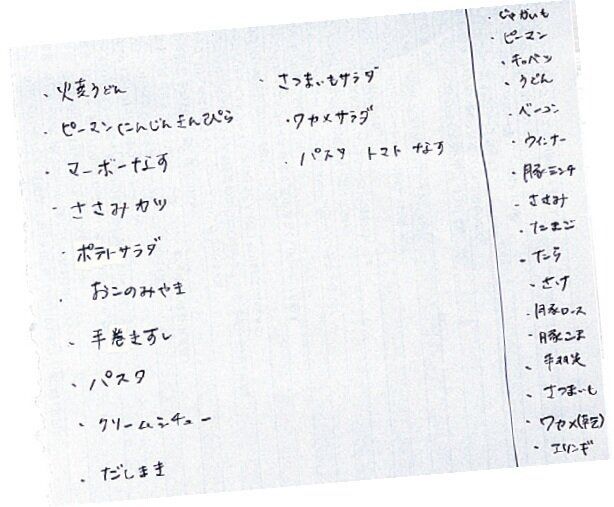 ・火吏うどん
・ピーマンにんじんきんぴら
・マーボーなす
・ささみカツ
・ポテトサラダ
・おこのみやき
・手巻きすし
・パスタ
・クリームシチュー
・だしまき
・さつまいもサラダ
・ワカメサラダ
・パスタ トマト なす
・じゃがいも
・ピーマン
・キャベツ
・うどん
・ベーコン
・ウィンナー
・豚ミンチ
・ささみ
・たまご
・たら
・さけ
・豚ロース
・豚こま
・手羽先
・さつまいも
・ワカメ(乾)
・エリンギ